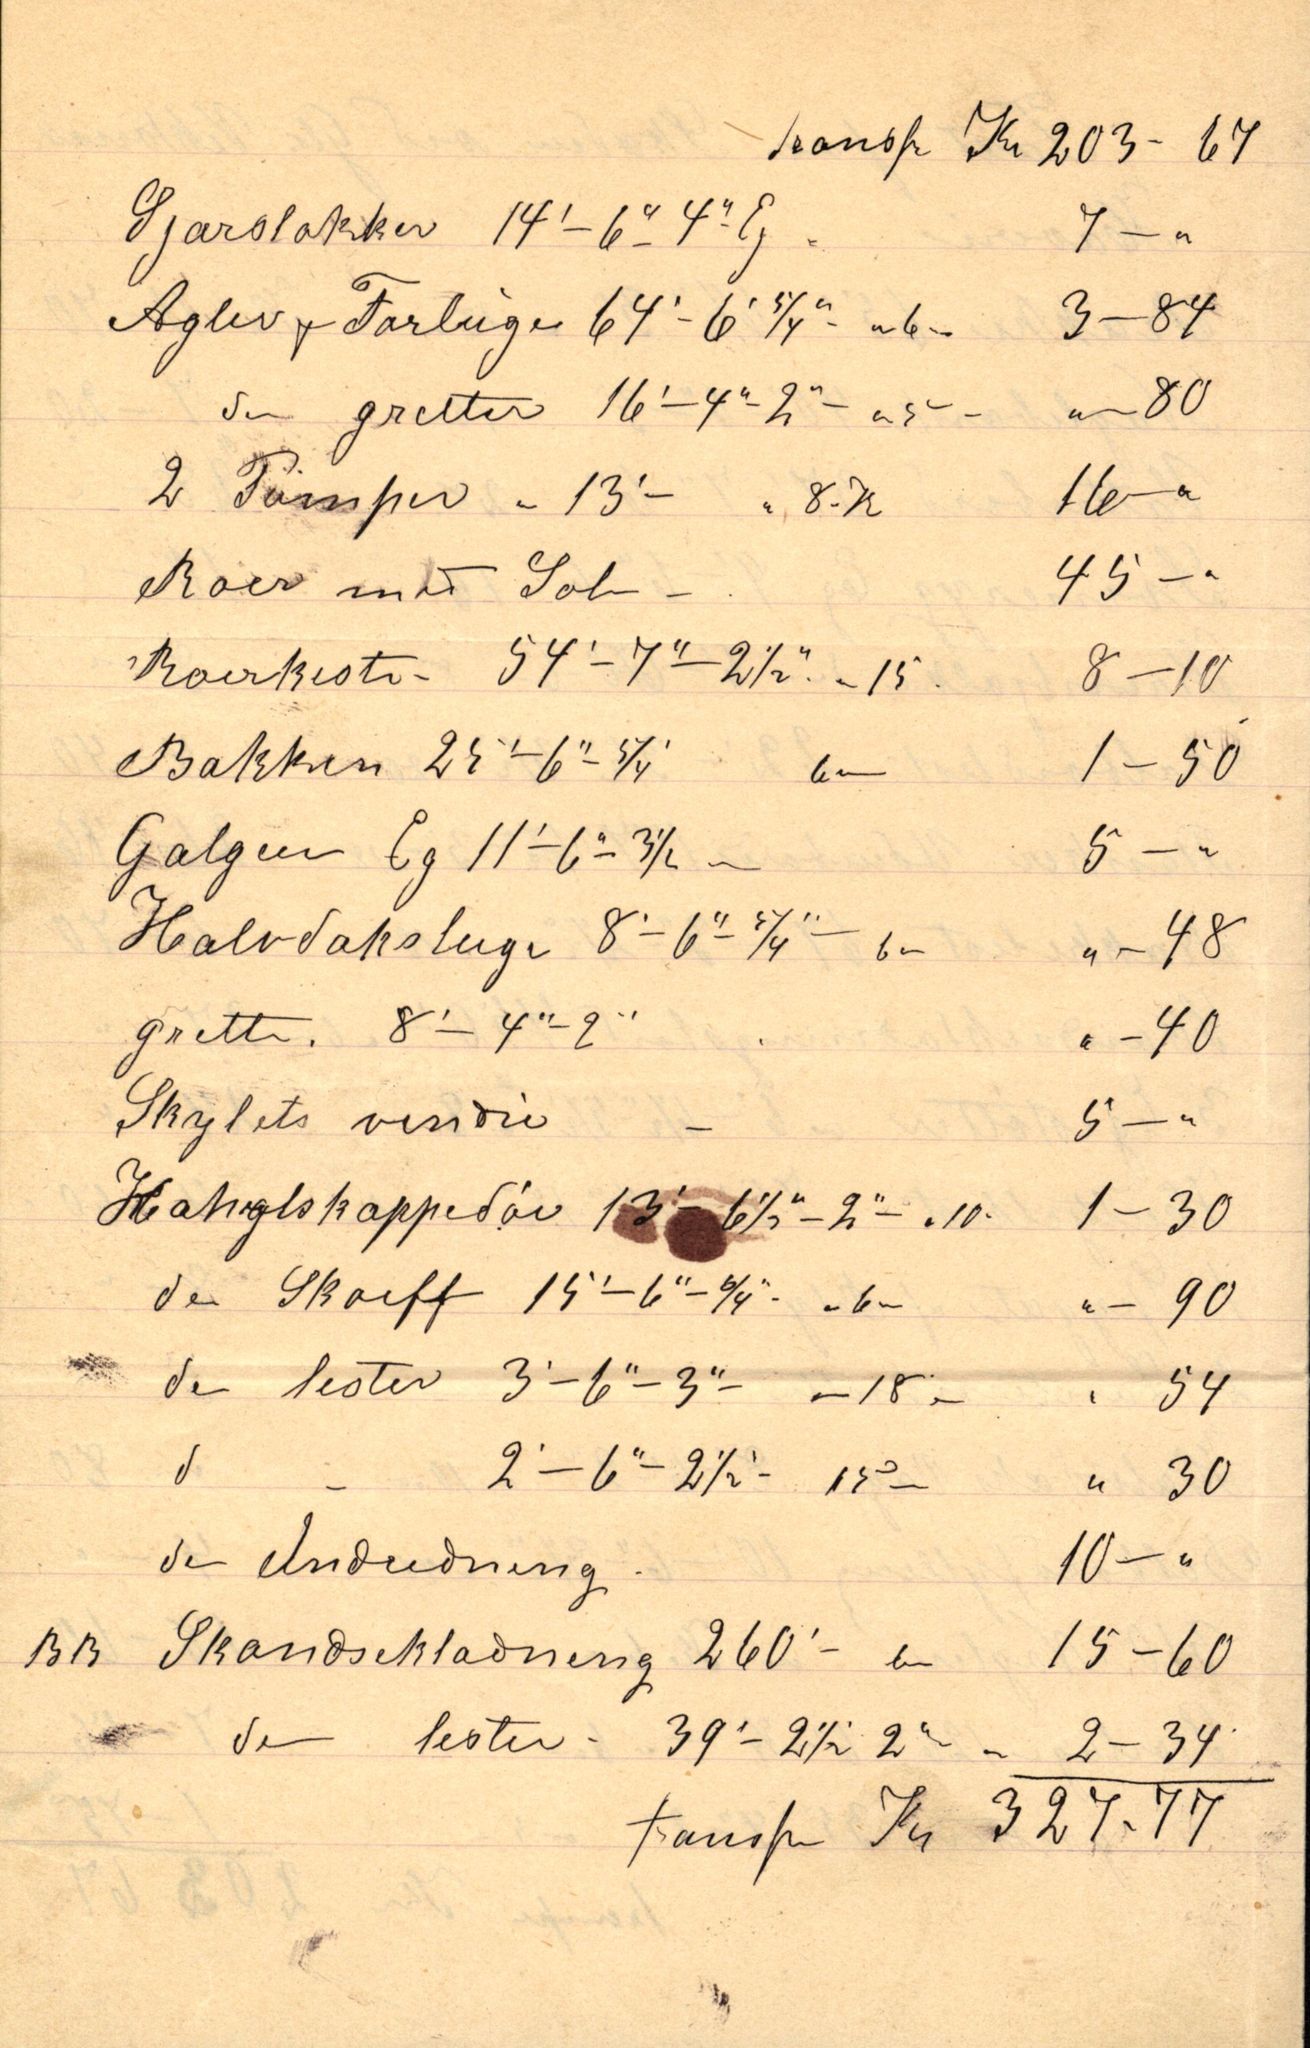 transp Kr 203 - 67
Gjarslakker 14' - 6" - 4" Eg - 7 - "
Agler & Forluge 64' - 6' 5/4" - " 6 - 3 - 84
do gretter 16' - 4" - 2" - " 5 - " - 80
2 Pumper " 13' - " 8 - K 16 - "
Roer med Sol - 45 - "
Roerkiste - 54' - 7" - 2 1/2" - " 15 - 8 - 10
Bakken 25' - 6" - 5/4" 6 - 1 - 50
Galgen Eg 11' - 6" - 3 1/2 - 5 - "
Halvdaksluge 8' - 6" - 5/4" - 6 - " - 48
grette. 8' - 4" - 2" " - 40
Skylets verdie - 5 - "
13' - 6 1/2" - 2" - " 10 - 1 - 30
do Skoeff 15' - 6" - 5/4" - " 6 - " - 90
do lester 3' - 6" - 3" - " 18 - " 54
d - 2' - 6" - 2 1/2' - 15 - " 30
do Indredning. 10 - "
BB Skandsekladning 260' - 6 - 15 - 60
do lester - 39' - 2 1/2 2" - " 2 - 34
transp Kr 327 - 77